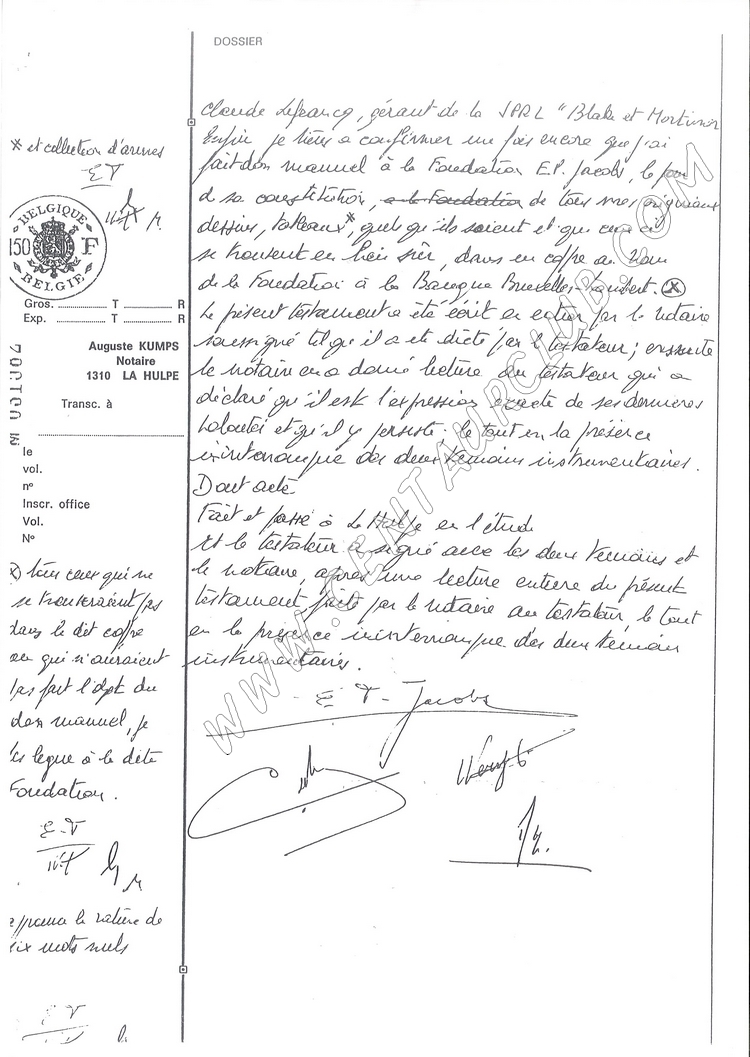 DOSSIER
Claude Lefrancq, gérant de la SPRL "Blake et Mortimer
Enfin je tiens à confirmer une fois encore que j'ai
fait don manuel à la Fondation E.P. Jacobs, le jour
de sa constitution, à la Fondation de tous mes originaux
dessins, tableaux*, quels qu'ils soient et que ceux-ci
se trouvent en lieu sûr, dans un coffre au nom
de la Fondation à la Banque Bruxelles-Lambert. ⓧ
Le présent testament a été écrit en entier par le notaire
soussigné tel qu'il a été dicté par le testateur; ensuite
le notaire en a donné lecture au testateur qui a
déclaré qu'il est l'expression exacte de ses dernières
volontés et qu'il y persiste; le tout en la présence
ininterrompue des deux témoins instrumentaires.
Dont acte
Fait et passé à La Hulpe en l'étude
Et le testateur a signé avec les deux témoins et
le notaire, après une lecture entière du présent
testament faite par le notaire au testateur, le tout
en la présence ininterrompue des deux témoins
instrumentaires.
E P Jacobs
* et collection d'armes
BELGIQUE
150 F
BELGIE
Gros. T R
Exp. T R
Auguste KUMPS
Notaire
1310 LA HULPE
Transc. à
le
vol.
n°
Inscr. office
Vol.
N°
ⓧ tous ceux qui ne
se trouveraient pas
dans le dit coffre
ou qui n'auraient
pas fait l'objet du
don manuel, je
les lègue à la dite
Fondation.
approuvé la rature de
mots nuls
WWW.CENTAURCLUB.COM